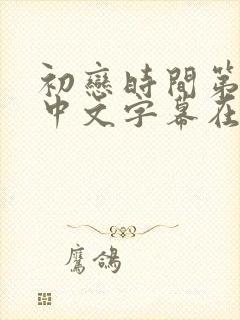 初戀時間第
中文字幕在
鷹鴿